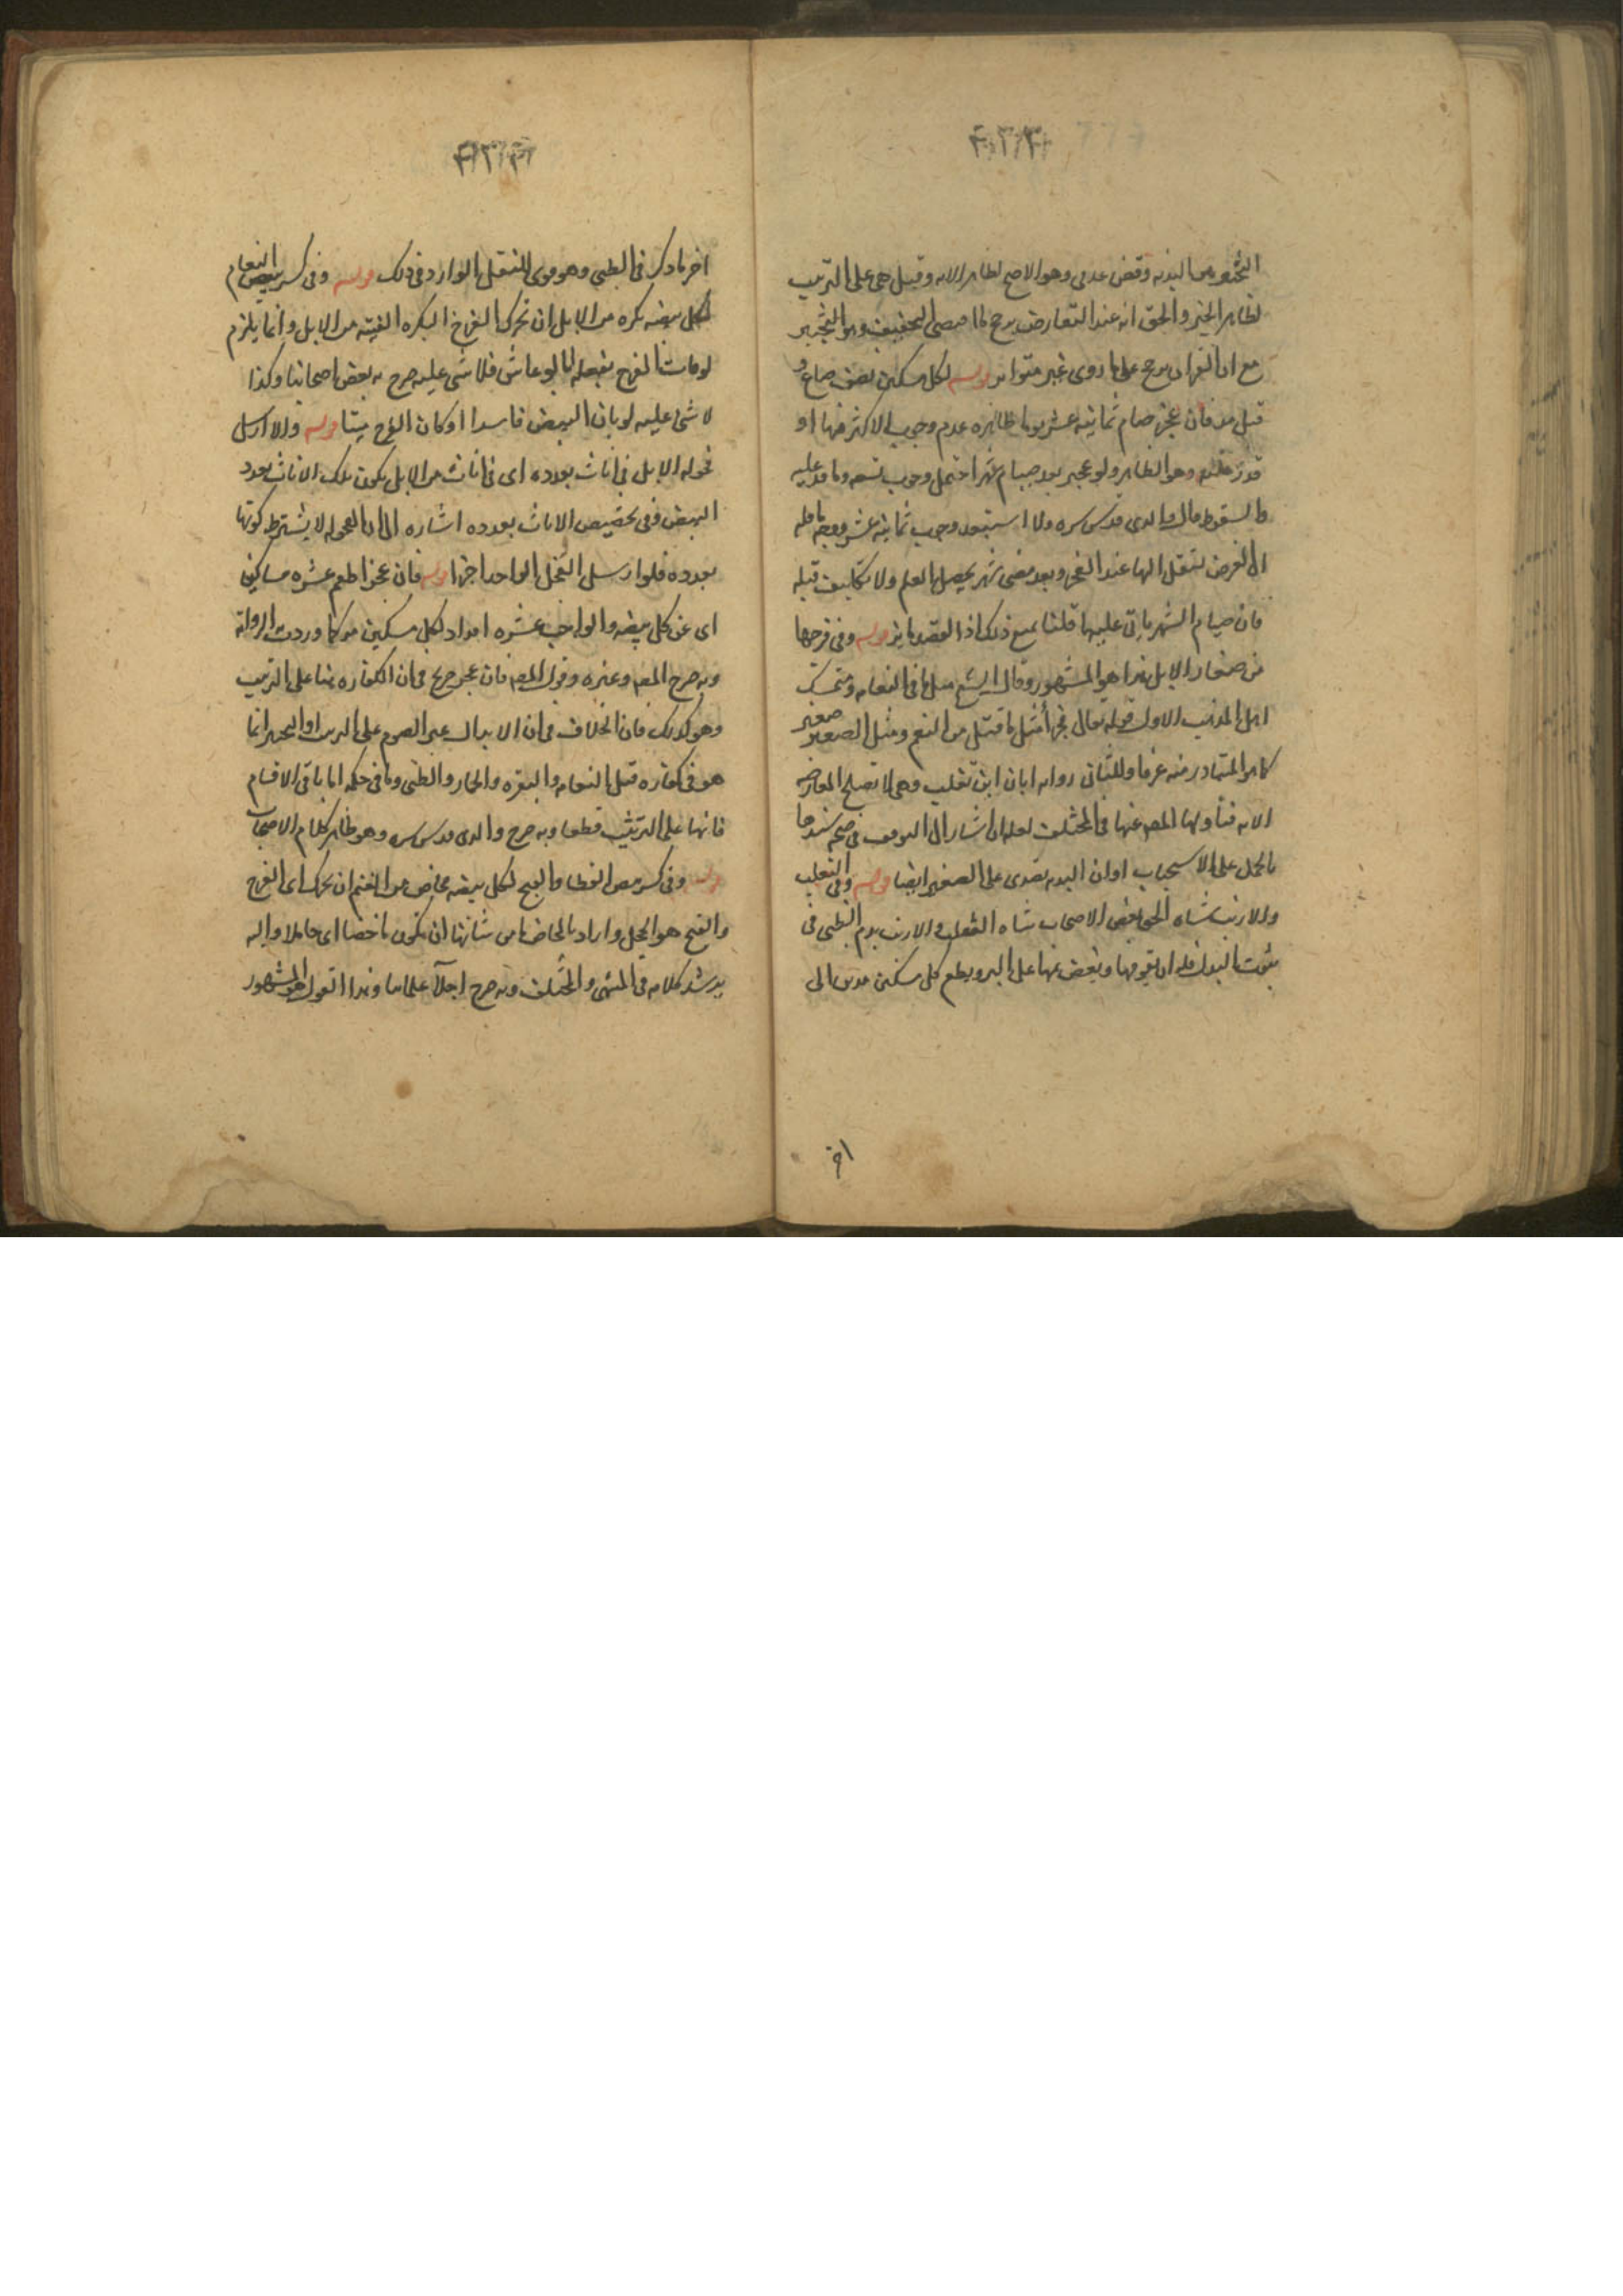 وهو الاصح لظاهر الايه وقيل هى على الترتيب
لظاهر الخبر والحق انه عند التعارض يرجح
مع ان القران يرجح على ما روى غير متواتر قوله لكل مسكين نصف صاع و
قيل مد فان عجز صام ثمانيه عشر يوما ظاهره عدم وجوب الاكثر منها او
وهو الظاهر ولو عجز بعد صيام شهر احتمل وجوب تسعه وما قدر عليه
والسقوط قال والدى قدس سره ولا استبعد وجوب ثمانيه عشر
الفرض تنتقل اليها عند العجز وبعد مضى شهر يحصل العلم ولا تكليف قبله
فان صيام الشهر ياتى عليها قلنا يمنع ذلك قوله وفى فرخها
من صغار الابل هذا هو المشهور وقال الشيخ مثل ما فى النعامه ومتمسك
اهل المذهب الاول قوله تعالى فجزاء مثل ما قتل من النعم ومثل الصغير صغير
كما هو المتبادر منه عرفا وللثانى روايه ابان ابن تغلب وهى لا تصلح لمعارضه
الايه فتأولها المصه عنها فى المختلف اشار الى التوقف فى صحه سندها
بالحمل على الاستحباب او ان البدنه تصدق على الصغير ايضا قوله وفى الثعلب
والارنب شاه الحق بعض الاصحاب شاه الثعلب والارنب بدم الظبى فى
ثبوت البدل فله ان يقومها ويفض ثمنها على البر ويطعم كل مسكين مدين الى
اخر ما ذكر فى الظبى وهو قوى للنقل الوارد فى ذلك قوله وفى كسر بيض النعام
لكل بيضه بكره من الابل ان تحرك الفرخ البكره الفتيه من الابل وانما يلزم
لو مات الفرخ لو عاش فلا شى عليه صرح به بعض اصحابنا وكذا
لا شى عليه لو بان البيض فاسدا او كان الفرخ ميتا قوله والا ارسل
فحوله الابل فى اناث بعدده اى فى اناث من الابل يكون تلك الاناث بعدد
البيض وفى تخصيص الاناث بعدده اشاره الى ان الفحوله لا يشترط كونها
بعدده فلو ارسل الفحل الواحد اجزا قوله فان عجز اطعم عشره مساكين
اى عن كل بيضه والواجب عشره امداد لكل مسكين مد كما وردت الروايه
وبه صرح المصه وغيره وقول المصه فان عجز صريح فى ان الكفاره هنا على الترتيب
وهو كذلك فان الخلاف فى ان الابدال غير الصوم على الترتيب او التخيير انما
هو فى كفاره قتل النعامه والبقره والحمار والظبى وما فى حكمه اما باقى الاقسام
فانها على الترتيب قطعا وبه صرح والدى قدس سره وهو ظاهر كلام الاصحاب
قوله وفى كسر بيض القطا والقبج لكل بيضه مخاض من الغنم ان تحرك اى الفرخ
والقبج هو الحجل واراد بالمخاض ما من شانها ان تكون ماخضا اى حاملا واليه
يرشد كلامه فى المنتهى والمختلف وبه صرح اجلاء علمائنا وهذا القول هو المشهور